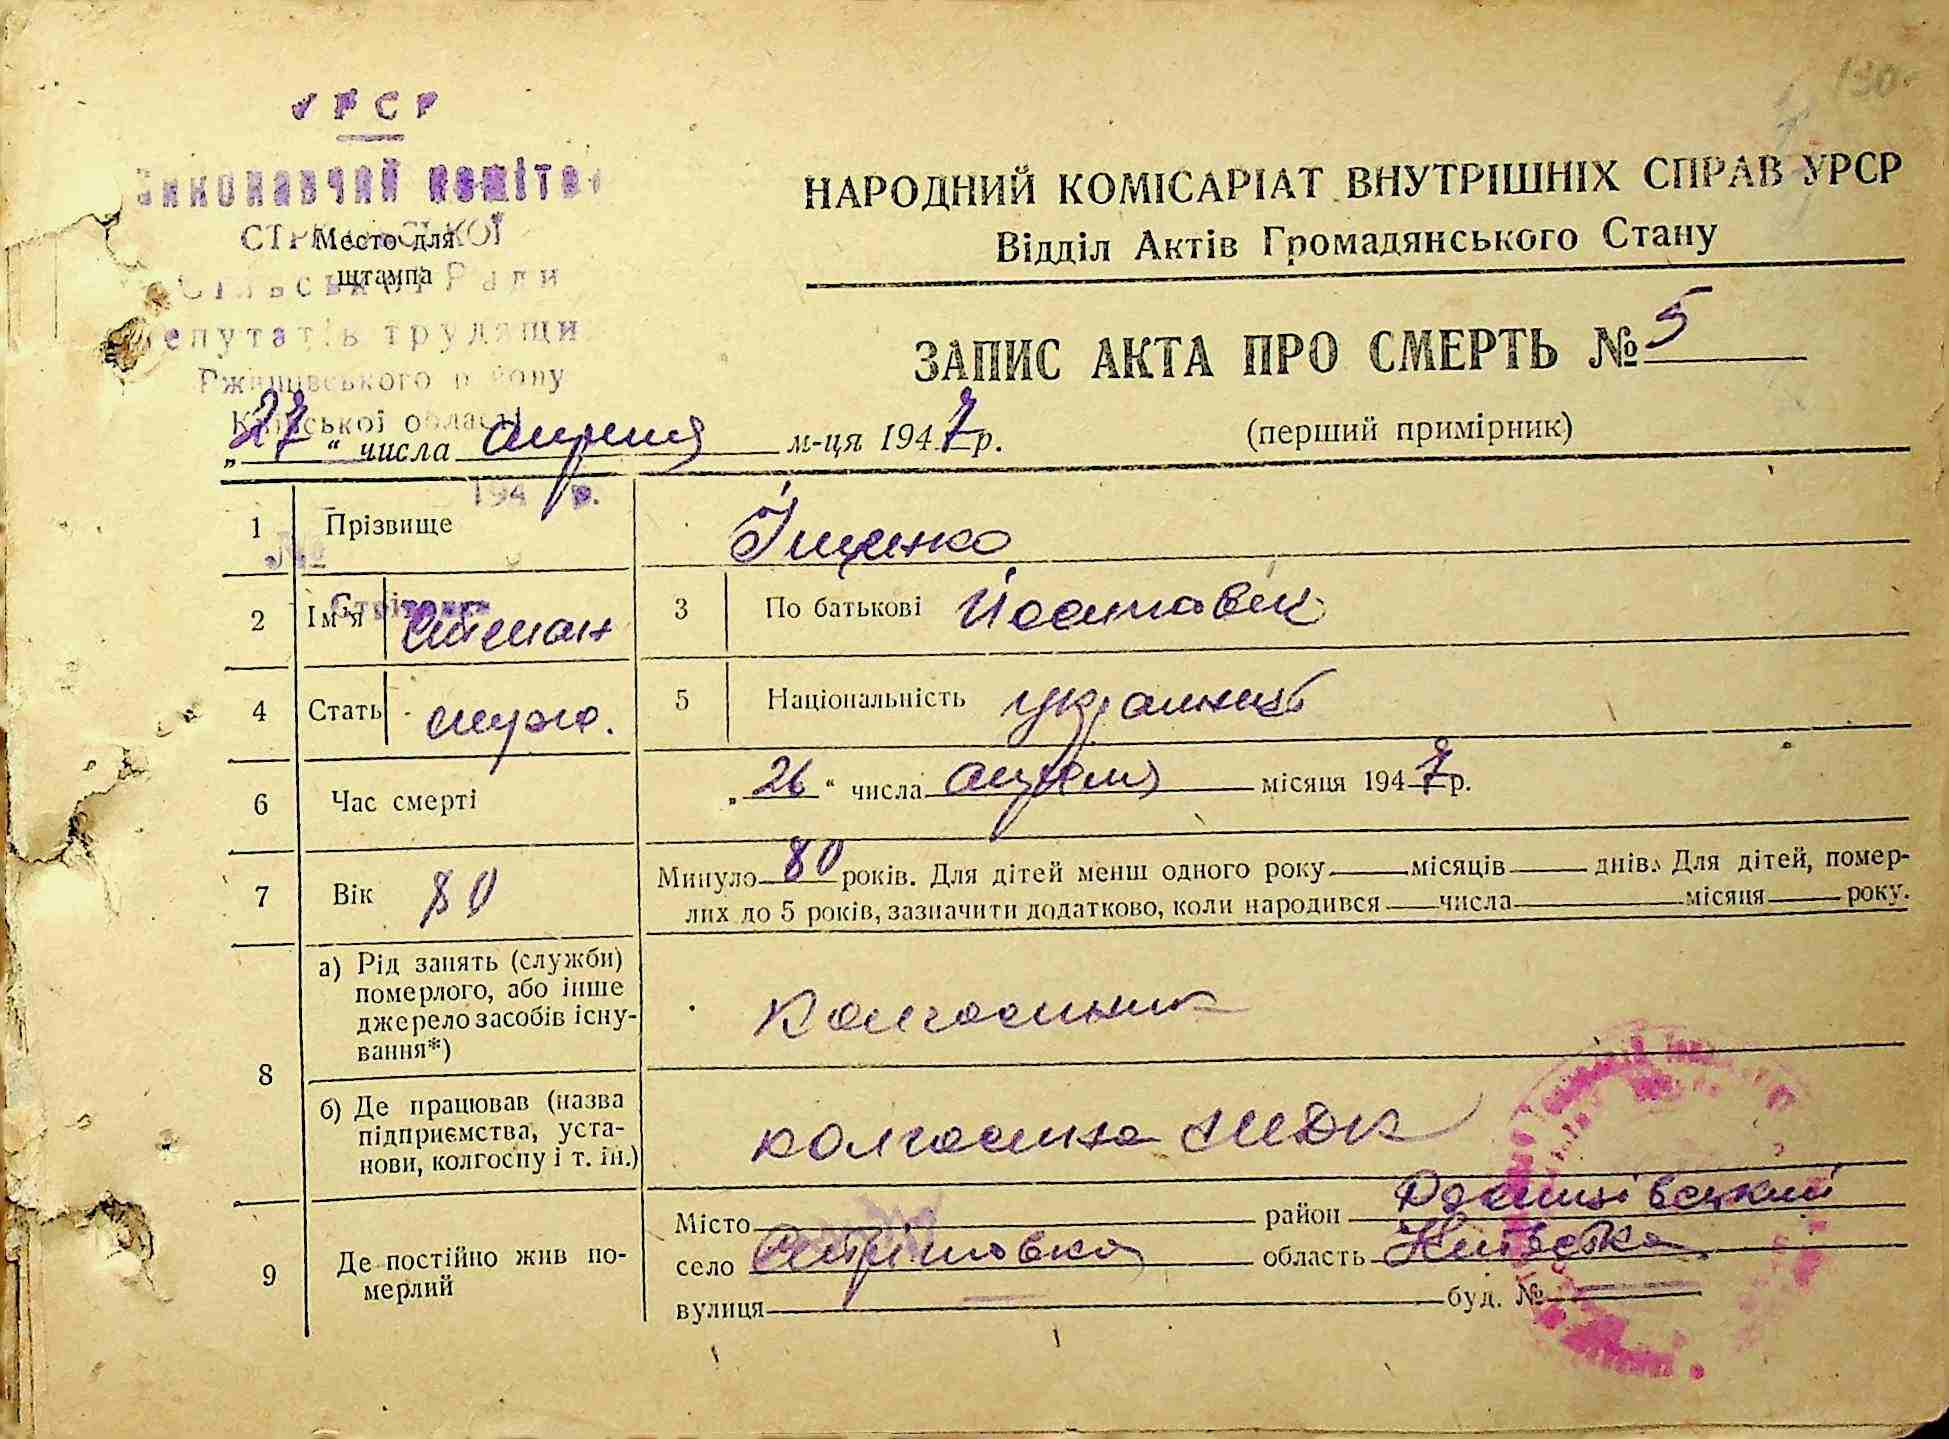 130
УРСР
Виконавчий комітет
СТРІТІВСЬКОЇ
Місто для
штампа
Сільської Ради
депутатів трудящих
Ржищівського району
Київської області
194 р.
№
НАРОДНИЙ КОМІСАРІАТ ВНУТРІШНІХ СПРАВ УРСР
Відділ Актів Громадянського Стану
ЗАПИС АКТА ПРО СМЕРТЬ № 5
(перший примірник)
„27“ числа апреля м-ця 1947 р.
1 Прізвище Іщенко
2 Ім'я Степан 3 По батькові
4 Стать муж. 5 Національність українец
6 Час смерті „26“ числа апреля місяця 1947 р.
7 Вік 80 Минуло 80 років. Для дітей менш одного року місяців днів. Для дітей, помер-
лих до 5 років, зазначити додатково, коли народився числа місяця року.
8 а) Рід занять (служби)
померлого, або інше
джерело засобів існу-
вання*)
Колгоспник
б) Де працював (назва
підприємства, уста-
нови, колгоспу і т. ін.)
колгоспа
9 Де постійно жив по-
мерлий
Місто район Ржищівський
село Стрітовка область Київска
вулиця буд. №